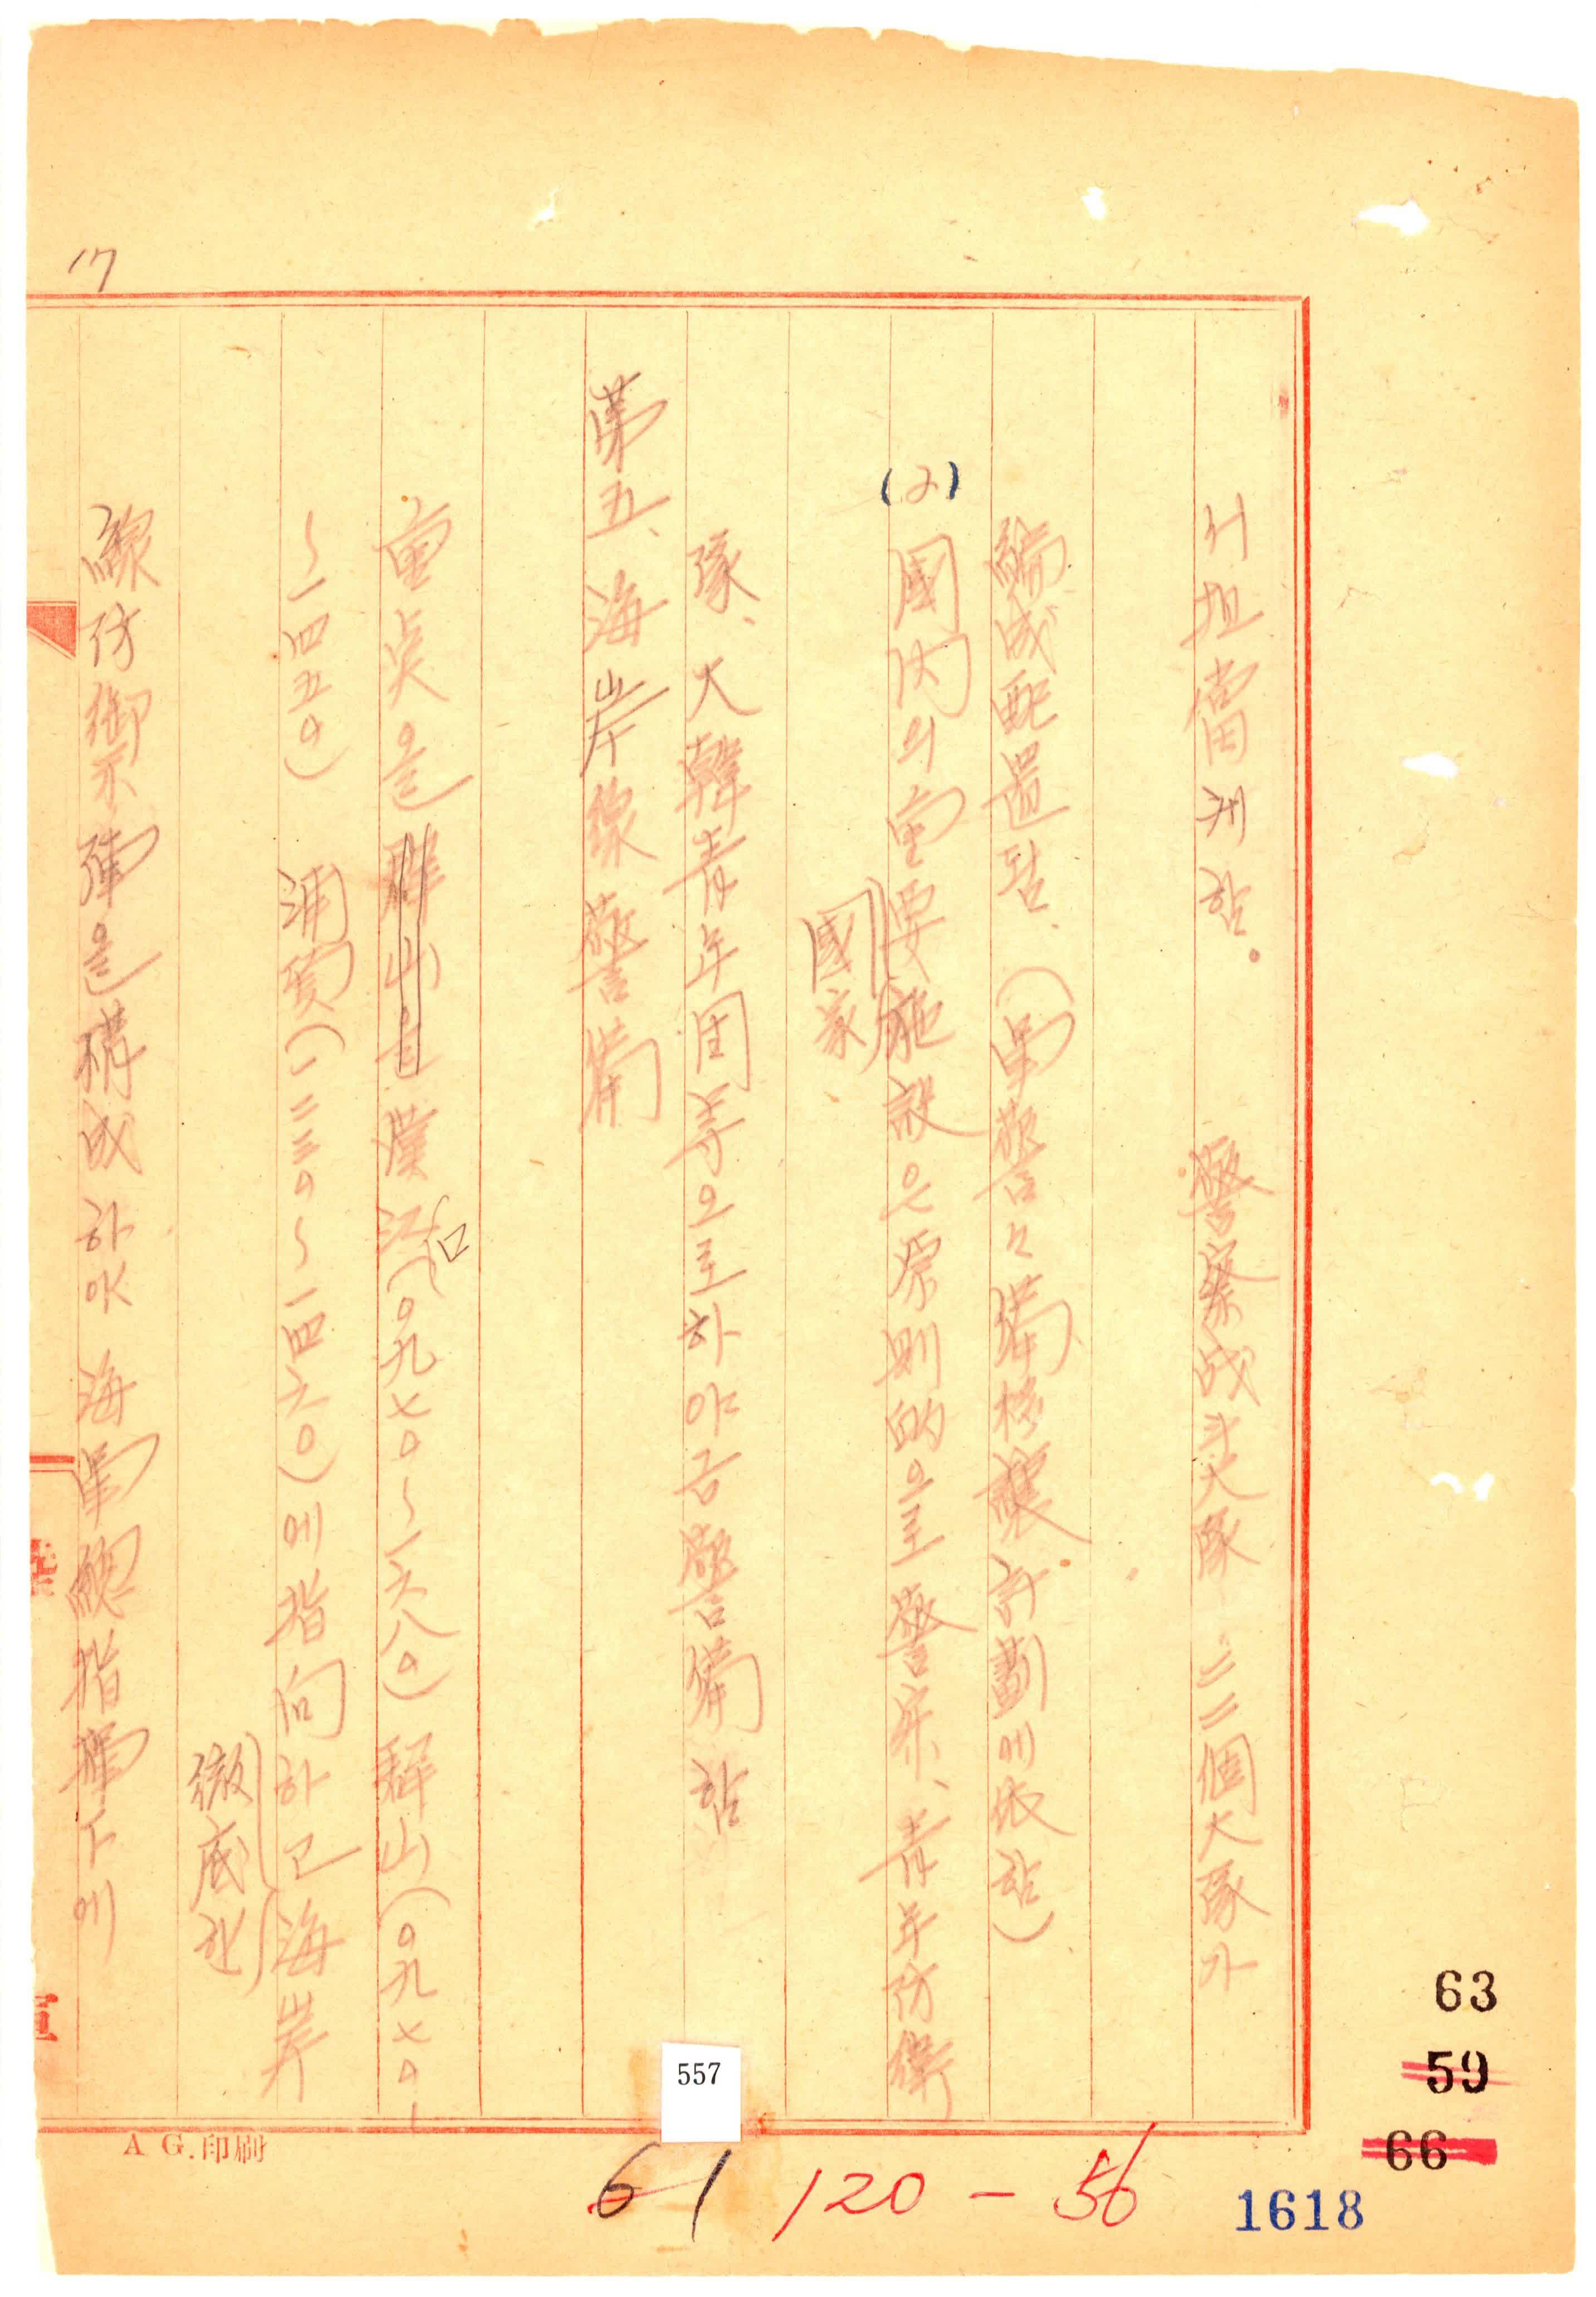 17
서 担當케 함. 警察战斗大隊 二二個大隊가
編成配置됨、(軍警々備協議計劃에 依함)
(2) 國內의 重要施設은 原則的으로 警察、青年防衛
國家、
隊、大韓青年団等으로 하야금 警備함
第五、海岸線警備
重点을 群山을 漢江口(〇九七〇~一六八〇) 群山(〇九七〇-
~一四五〇) 浦項(一二三〇~一四六〇)에 指向하고 海岸
徹底한
線防御幕을 構成하야 海軍總指揮下에
A G.印刷
557
61
120-56
63
59
66
1618